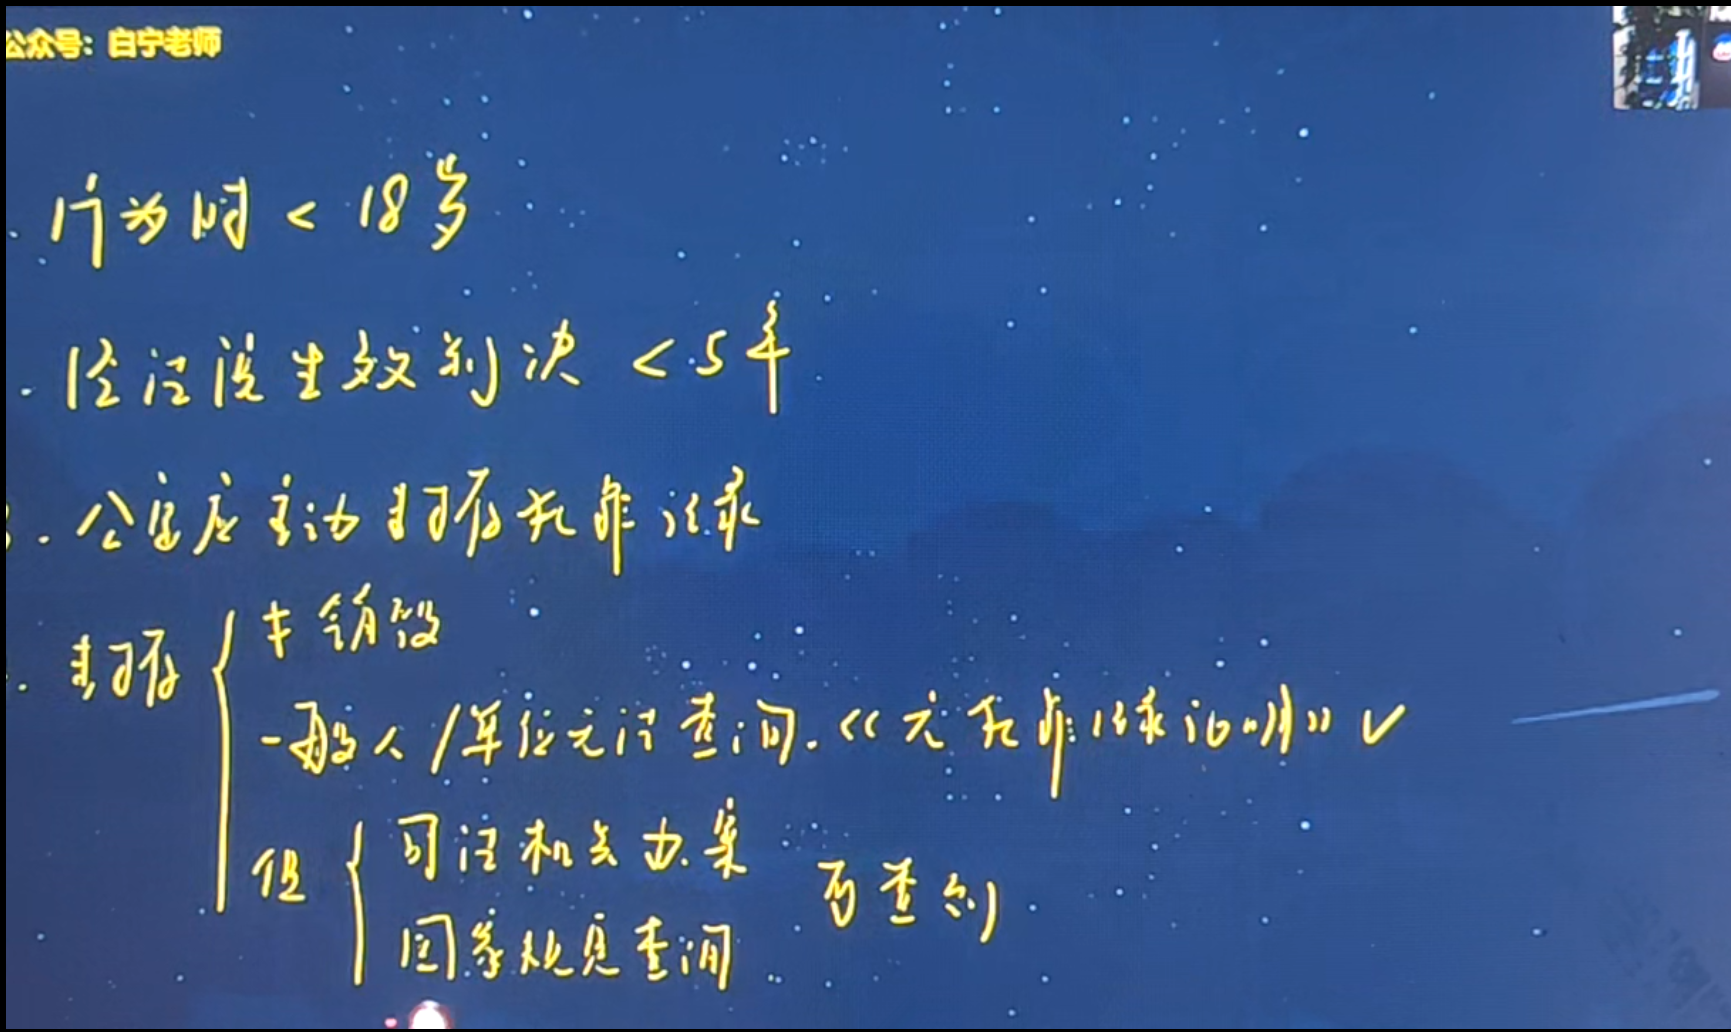 公众号：白宁老师
. 行为时 < 18岁
. 法院生效判决 < 5年
. 公安应主动封存犯罪记录
. 封存
未销毁
一般人/单位无法查询.《无犯罪记录证明》✓
但
司法机关办案
国家规定查询
可查到